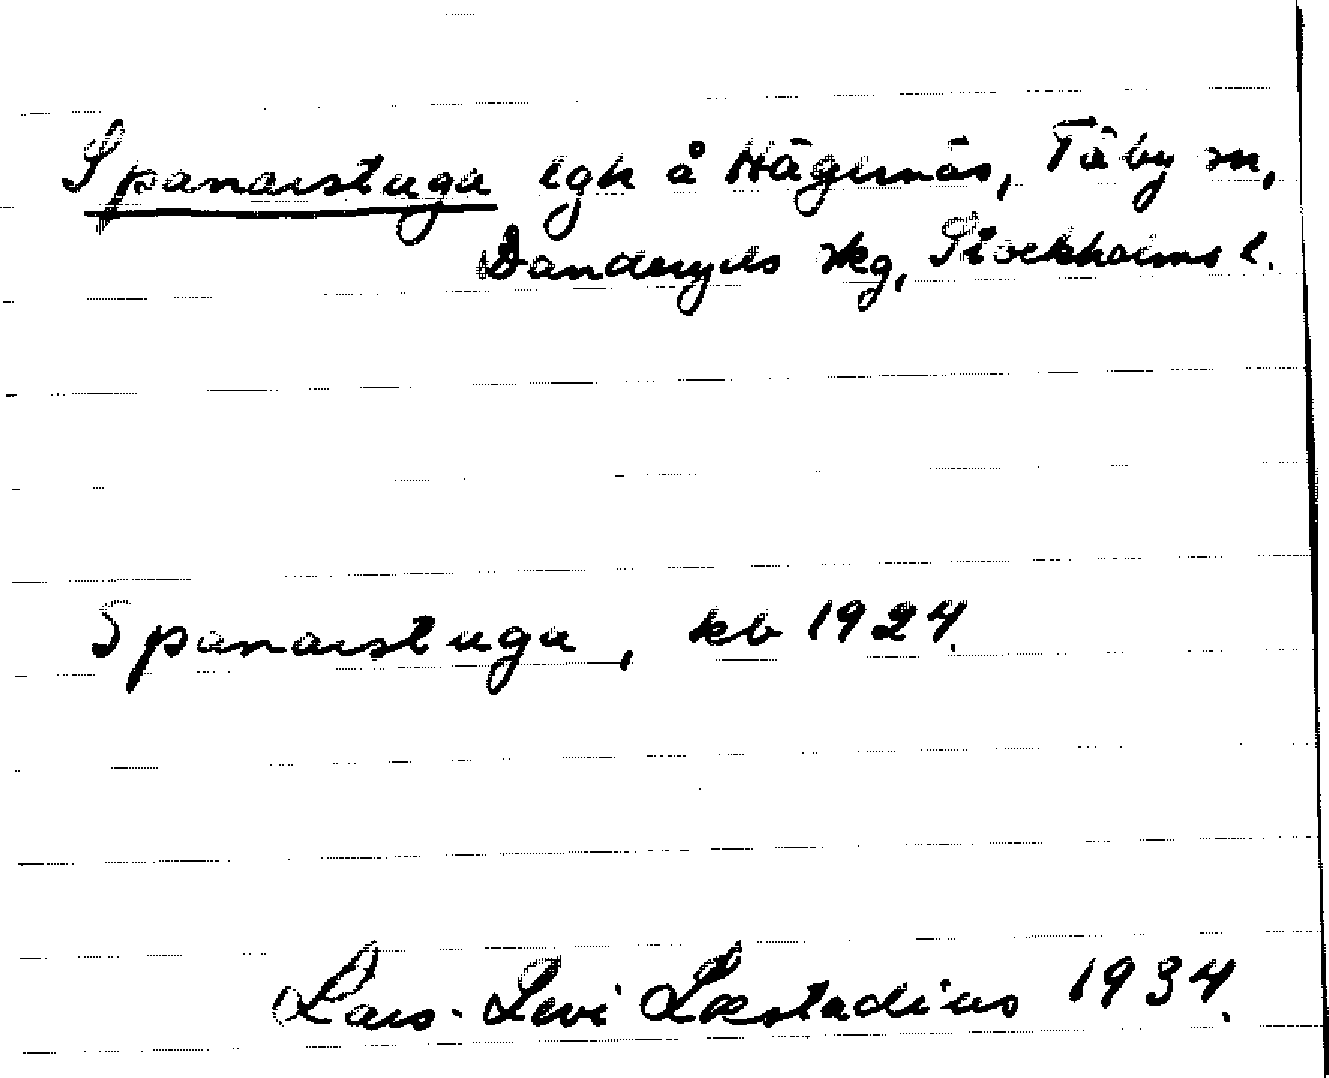 Spanarstuga lgh å Hägernäs, Täby sn,
Danderyds skg, Stockholms l.
Spanarstuga, kb 1924.
Lars-Levi Læstadius 1934.